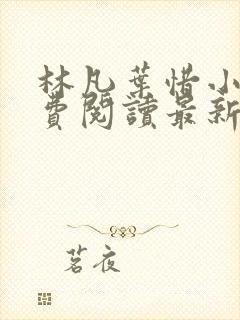 林凡葉惜小
費閱讀最新
茗夜